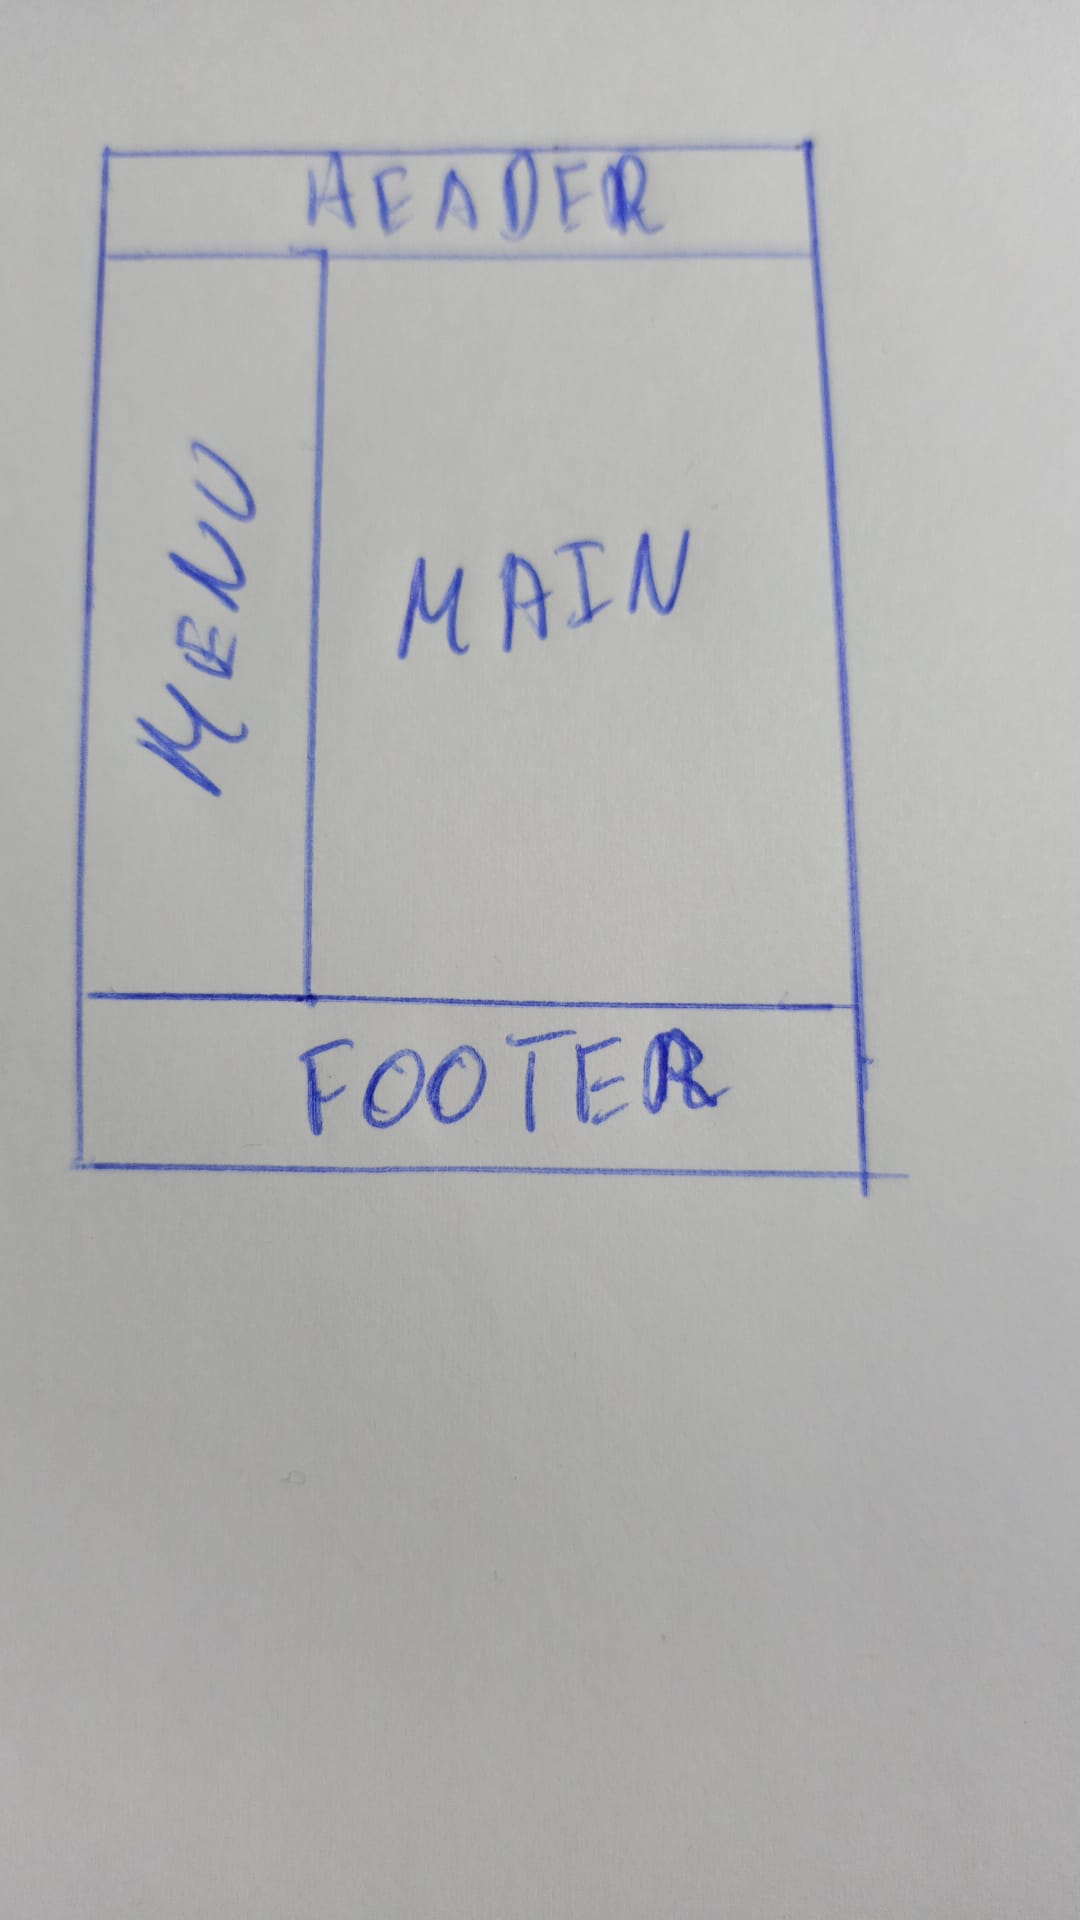 HEADER
MENU
MAIN
FOOTER